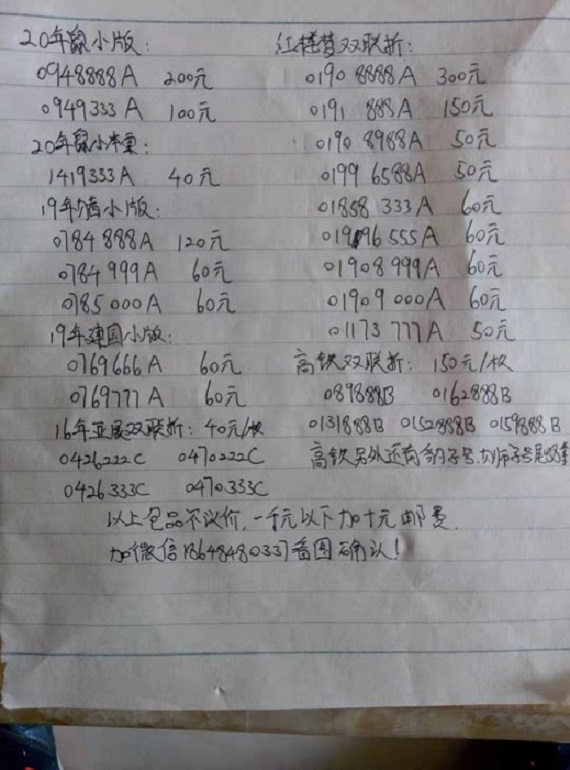 20年鼠小版:
0948888A 200元
0949333A 100元
20年鼠小本票:
1419333A 40元
19年猪小版:
0784888A 120元
0784999A 60元
0785000A 60元
19年建国小版:
0769666A 60元
0769777A 60元
16年亚展双联折: 40元/枚
0426222C 0470222C
0426333C 0470333C
红楼梦双联折:
0190 8888A 300元
0191 888A 150元
0190 8988A 50元
0199 6588A 50元
01858 333A 60元
019096 555A 60元
01908 999A 60元
01909 000A 60元
01173 777A 50元
高铁双联折: 150元/枚
089888B 0162888B
0131888B 0152888B 0159888B
高铁另外还有豹子号
以上包品不议价,一千元以下加十元邮费.
加微信18648480337看图确认!